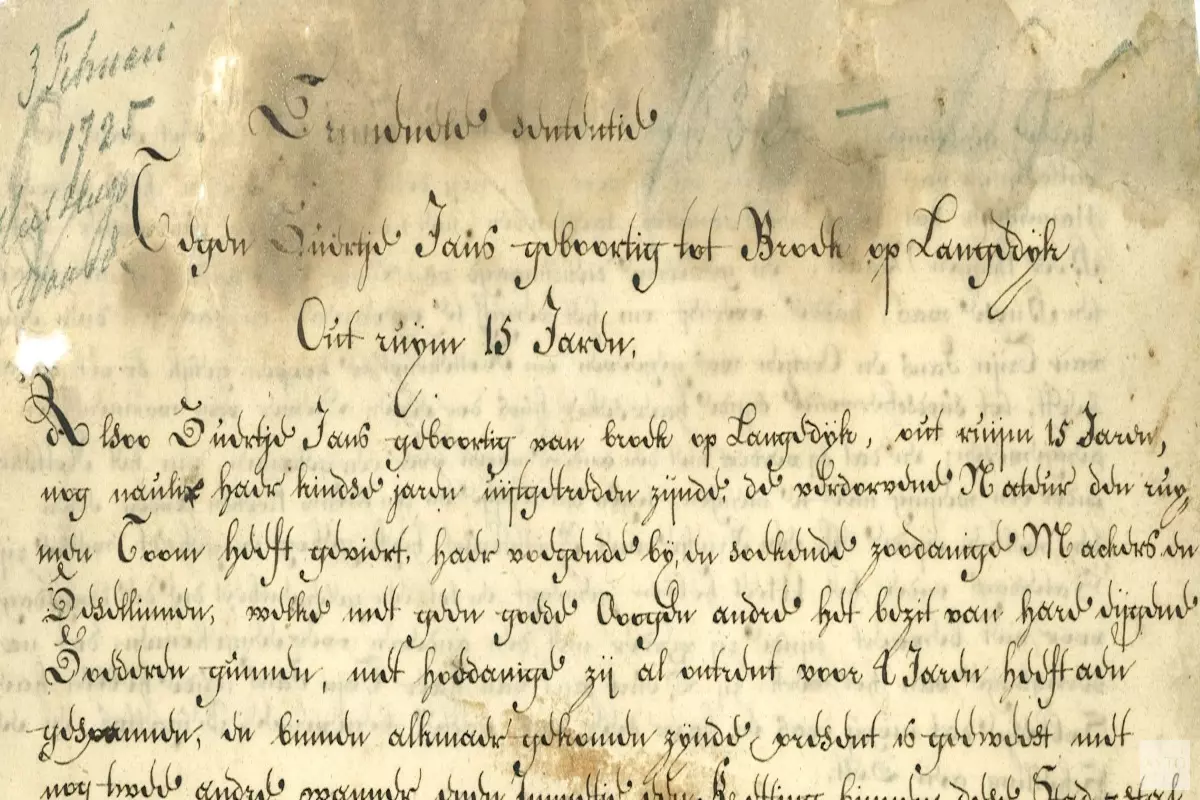 3 Februari
1725
Crimenele sententie
Tegen Guertje Jans geboortig tot Broek op Langedÿk
Out ruÿm 15 Jaren.
Alsoo Guertje Jans geboortig van broek op Langedÿk, out ruÿm 15 Jaren,
nog naulix haer kindse jaren uÿtgetreden zÿnde, de verdorvene Nateur den ruÿ
men Toom heeft geviert, haer voegende bÿ, en soekende zoodanige Mackers en
Gesellinnen, welke met geen goede Ooogen andre het bezit van hare eÿgene
Goederen gunnen, met hoedanige zÿ al ontrent voor 4 Jaren heeft aen
gespannen, en binnen alkmaer gekomen zÿnde present is geweest met
nog twee andre wanneer een binnen dese Stad